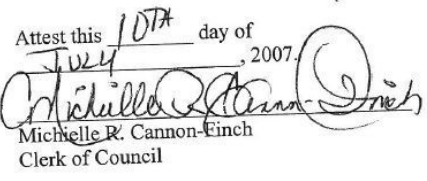 Attest this 10TH day of
JULY, 2007.
Michielle R Cannon-Finch
Michielle R. Cannon-Finch
Clerk of Council